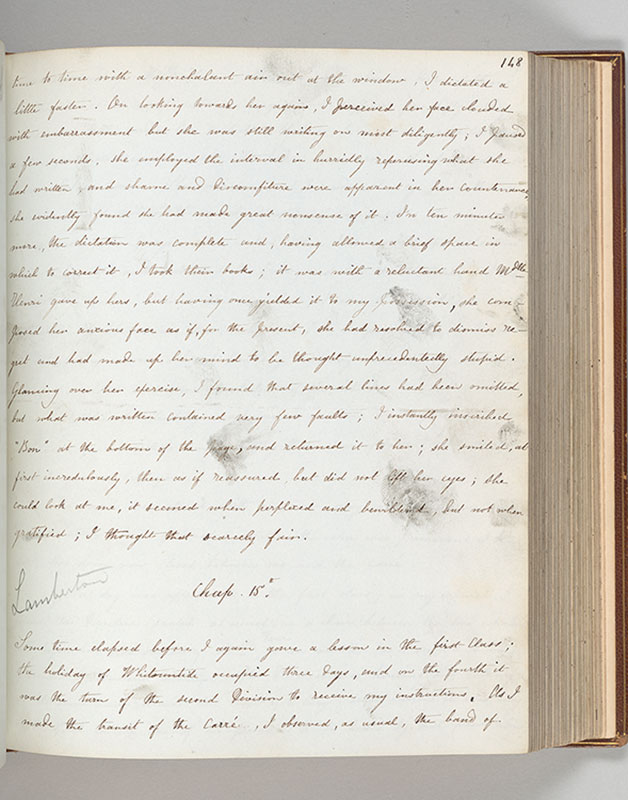 148
time to time with a nonchalant air out at the window. I dictated a
little faster. On looking towards her again, I perceived her face clouded
with embarrassment but she was still writing on most diligently; I paused
a few seconds, she employed the interval in hurridly reperusing what she
had written, and shame and discomfiture were apparent in her countenance,
she evidently found she had made great nonsense of it. In ten minutes
more, the dictation was complete and, having allowed a brief space in
which to correct it, I took their books; it was with a reluctant hand Mdlle
Henri gave up hers, but having once yielded it to my possession, she com-
posed her anxious face as if, for the present, she had resolved to dismiss re-
gret and had made up her mind to be thought unprecedentedly stupid.
Glancing over her exercise, I found that several lines had been omitted,
but what was written contained very few faults; I instantly inscribed
"Bon" at the bottom of the page, and returned it to her; she smiled, at
first incredulously, then as if reassured but did not lift her eyes; she
could look at me, it seemed when perplexed and bewildered, but not when
gratified; I thought that scarcely fair.
Lamberton
Chap. 15t.
Some time elapsed before I again gave a lesson in the first Class;
the holiday of Whitsuntide occupied three days, and on the fourth it
was the turn of the second Division to receive my instructions. As I
made the transit of the Carré, I observed, as usual, the band of